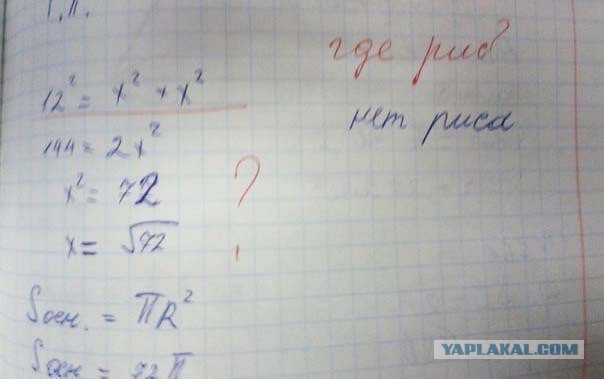 12² = x² + x²
144 = 2x²
x² = 72
x = √72
?
Sосн. = πR²
Sосн = 72π
где рис
нет риса
YAPLAKAL.COM